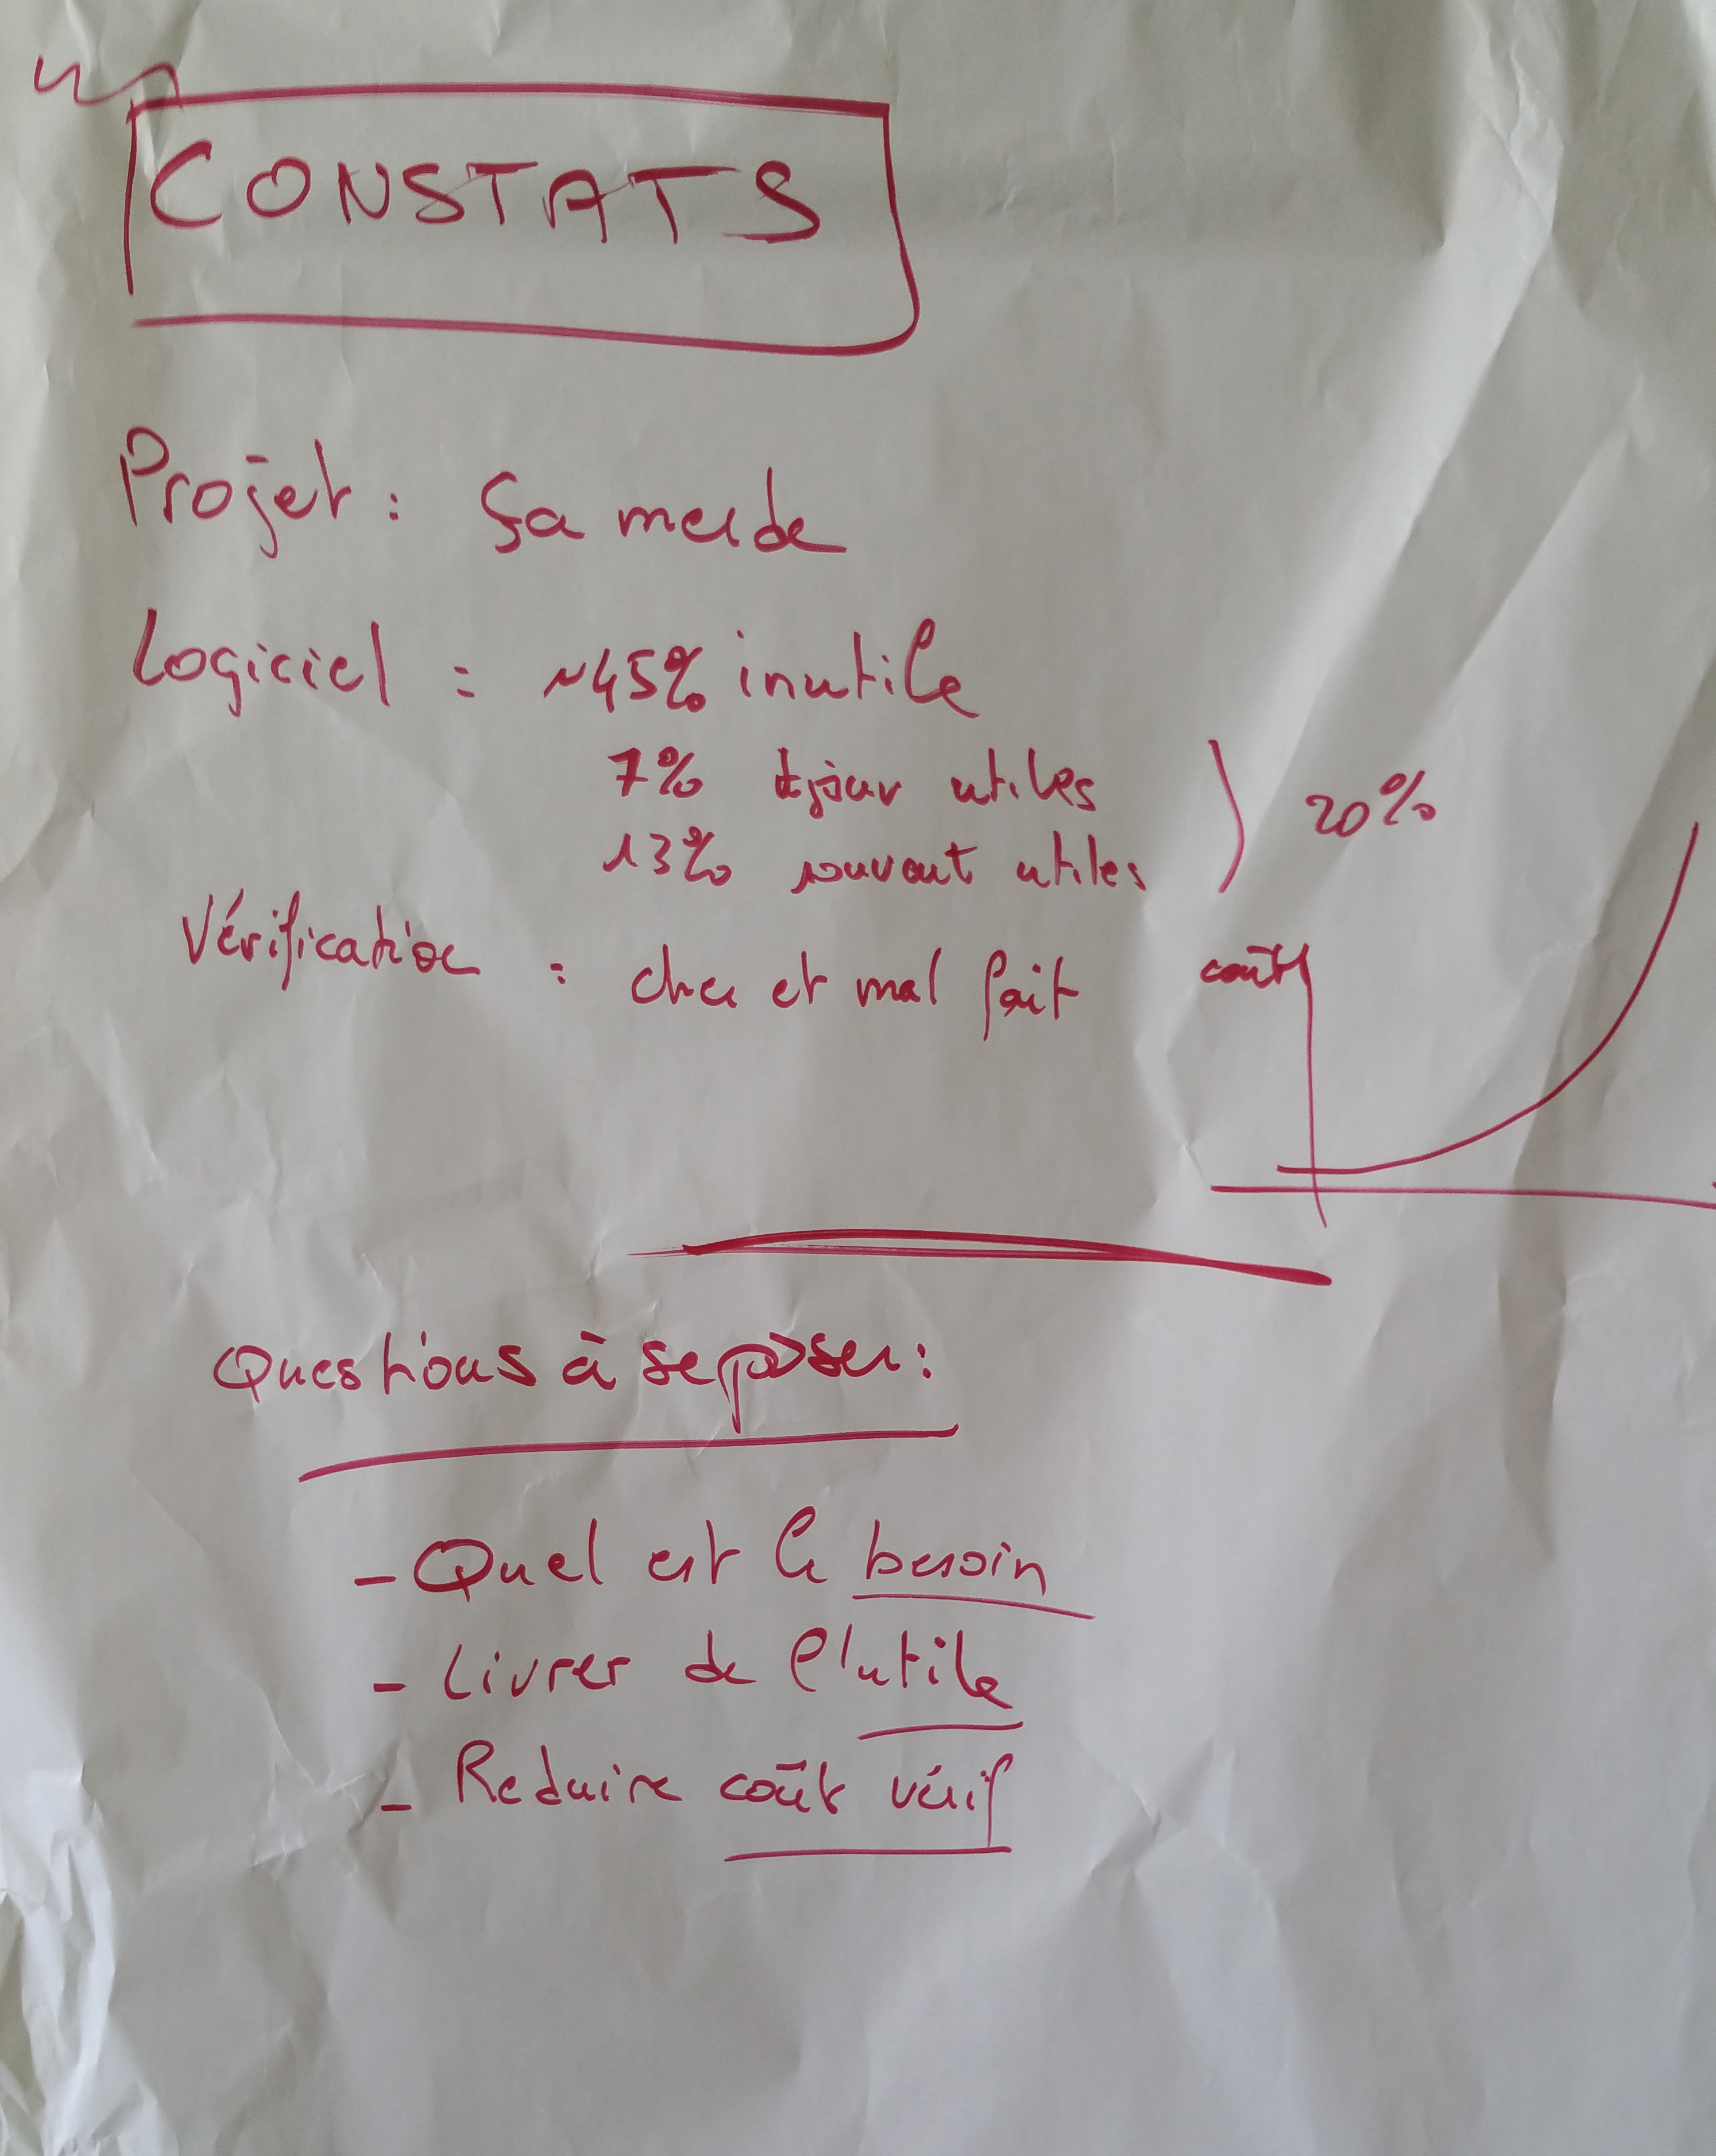 CONSTATS
Projet : Ça merde
Logiciel : ~45% inutile
7% tjour utiles
13% souvent utiles
20%
Vérification : cher et mal fait
coût
Questions à se poser :
- Quel est le besoin
- Livrer de l'utile
- Reduire coût vérif